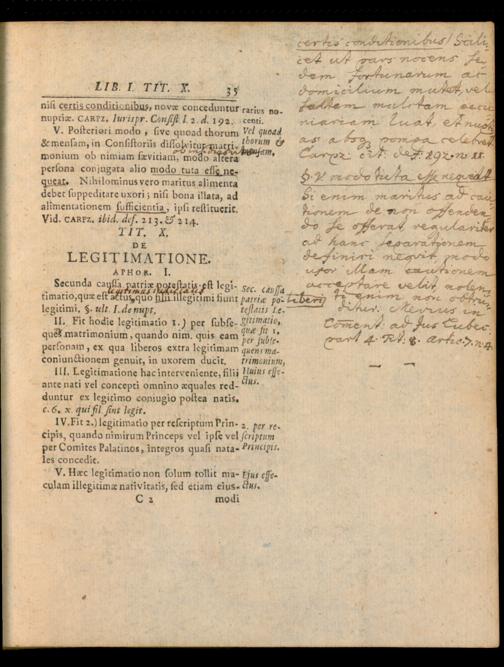 LIB. I. TIT. X. 35
nisi certis conditionibus, novæ conceduntur
nuptiæ. CARPZ. Iurispr. Consist l. 2. d. 192.
V. Posteriori modo, sive quoad thorum
& mensam, in Consistoriis dissolvitur matri-
monium ob nimiam sævitiam, modo altera
persona conjugata alio modo tuta esse ne-
queat. Nihilominus vero maritus alimenta
debet suppeditare uxori; nisi bona illata, ad
alimentationem sufficientia, ipsi restituerit.
Vid. CARPZ. ibid. def. 213. & 214.
rarius no-
centi.
Vel quoad
thorum &
mensam.
TIT. X.
DE
LEGITIMATIONE.
APHOR. I.
Secunda causa patriæ potestatis est legi-
timatio, quæ est actus, quo filii illegitimi fiunt
legitimi, §. ult I. de nupt.
II. Fit hodie legitimatio 1.) per subse-
quēs matrimonium, quando nim. quis eam
personam, ex qua liberos extra legitimam
coniunctionem genuit, in uxorem ducit.
III. Legitimatione hac interveniente, filii
ante nati vel concepti omnino æquales red-
duntur ex legitimo coniugio postea natis.
c. 6. x. qui fil sint legit.
IV. Fit 2.) legitimatio per rescriptum Prin-
cipis, quando nimirum Princeps vel ipse vel
per Comites Palatinos, integros quasi nata-
les concedit.
V. Hæc legitimatio non solum tollit ma-
culam illegitimæ nativitatis, sed etiam eius-
C 2 modi
Sec. caussa
patriæ po-
testatis Le-
gitimatio,
quæ fit 1.
per subse-
quens ma-
trimonium,
Huius effe-
ctus.
2. per re-
scriptum
Principis.
Ejus effe-
ctus.
certis conditionibus) Scili-
cet ut pars nocens se-
dem fortunarum ac
domicilium mutet, vel
saltem mulctam pecu-
niariam luat. et nupti-
as absq; pompa celebret
Carpz. cit. def. 192. n. 11.
§. V modo tuta esse nequeat
Si enim maritus ad cau-
tionem de non offenden-
do se offerat regulariter
ad hanc separationem
definiri nequit, modo
uxor illam cautionem
acceptare velit, nolen-
ti enim non obtru-
ditur. Mevius in
Coment. ad Jus Lubec.
part 4 Tit. 8. Artic. 7. n. 4.
liberi